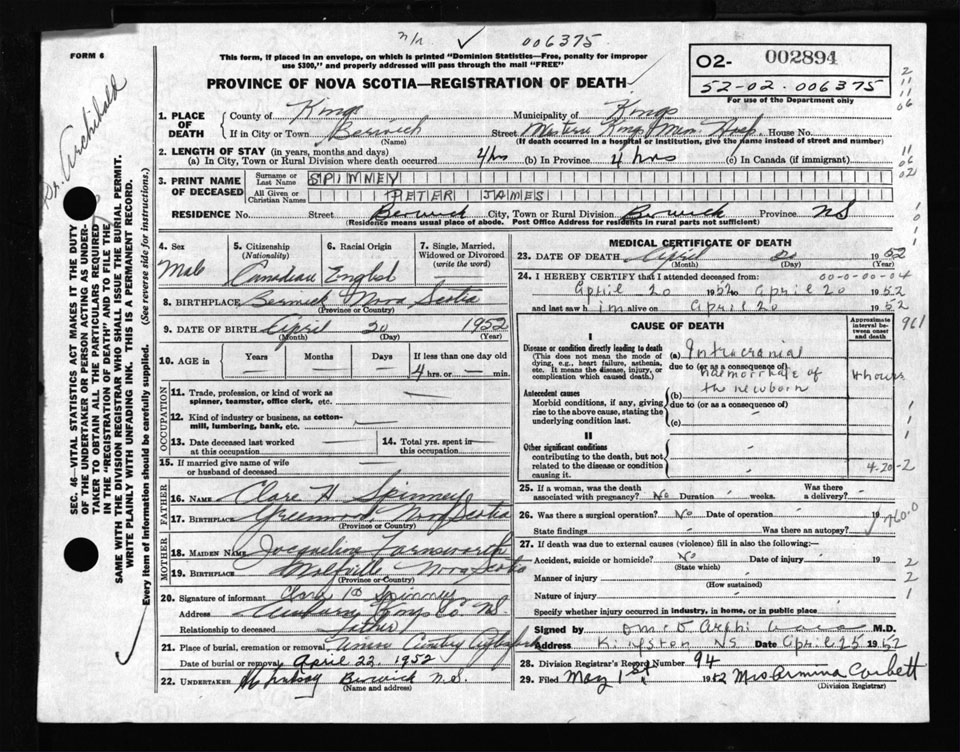 FORM 6
n/r ✓ 006375
This form, if placed in an envelope, on which is printed "Dominion Statistics—Free, penalty for improper
use $300," and properly addressed will pass through the mail "FREE"
PROVINCE OF NOVA SCOTIA—REGISTRATION OF DEATH
02- 002894
52-02-006375
For use of the Department only
Dr. Archibald
SEC. 46—VITAL STATISTICS ACT MAKES IT THE DUTY
OF THE UNDERTAKER OR PERSON ACTING AS UNDER-
TAKER TO OBTAIN ALL THE PARTICULARS REQUIRED
IN THE "REGISTRATION OF DEATH" AND TO FILE THE
SAME WITH THE DIVISION REGISTRAR WHO SHALL ISSUE THE BURIAL PERMIT.
WRITE PLAINLY WITH UNFADING INK. THIS IS A PERMANENT RECORD.
Every item of information should be carefully supplied. (See reverse side for instructions.)
1. PLACE OF DEATH
County of Kings Municipality of Kings
If in City or Town Berwick Street Western Kings Mem. Hosp. House No.
(Name) (If death occurred in a hospital or institution, give the name instead of street and number)
2. LENGTH OF STAY (in years, months and days)
(a) In City, Town or Rural Division where death occurred 4 hrs (b) In Province 4 hrs (c) In Canada (if immigrant)
3. PRINT NAME OF DECEASED
Surname or Last Name SPINNEY
All Given or Christian Names PETER JAMES
RESIDENCE No. Street Berwick City, Town or Rural Division Berwick Province NS
(Residence means usual place of abode. Post Office Address for residents in rural parts not sufficient)
4. Sex Male
5. Citizenship (Nationality) Canadian
6. Racial Origin English
7. Single, Married, Widowed or Divorced (write the word)
8. BIRTHPLACE Berwick Nova Scotia
(Province or Country)
9. DATE OF BIRTH April 20 1952
(Month) (Day) (Year)
10. AGE in Years Months Days If less than one day old
4 hrs. or — min.
OCCUPATION
11. Trade, profession, or kind of work as spinner, teamster, office clerk, etc.
12. Kind of industry or business, as cotton-mill, lumbering, bank, etc.
13. Date deceased last worked at this occupation
14. Total yrs. spent in this occupation
15. If married give name of wife or husband of deceased
FATHER
16. NAME Clare H Spinney
17. BIRTHPLACE Greenwood, Nova Scotia
(Province or Country)
MOTHER
18. MAIDEN NAME Jacqueline Farnsworth
19. BIRTHPLACE Wolfville Nova Scotia
(Province or Country)
20. Signature of informant Clare H Spinney
Address Kings Co. N.S.
Relationship to deceased father
21. Place of burial, cremation or removal
Date of burial or removal April 22, 1952
22. UNDERTAKER Berwick N.S.
(Name and address)
MEDICAL CERTIFICATE OF DEATH
23. DATE OF DEATH April 20 1952
(Month) (Day) (Year)
24. I HEREBY CERTIFY that I attended deceased from: 00-0-00-04
April 20 1952 to April 20 1952
and last saw him alive on April 20 1952
CAUSE OF DEATH
Approximate interval between onset and death
I
Disease or condition directly leading to death
(This does not mean the mode of dying, e.g., heart failure, asthenia, etc. It means the disease, injury, or complication which caused death.)
(a) Intracranial
due to (or as a consequence of)
haemorrhage of
the newborn
4 hours
Antecedent causes
Morbid conditions, if any, giving rise to the above cause, stating the underlying condition last.
(b)
due to (or as a consequence of)
(c)
II
Other significant conditions
contributing to the death, but not related to the disease or condition causing it.
4-20-2
961
25. If a woman, was the death associated with pregnancy? No Duration weeks. Was there a delivery?
26. Was there a surgical operation? No Date of operation 19
State findings Was there an autopsy?
760.0
27. If death was due to external causes (violence) fill in also the following:—
Accident, suicide or homicide? No Date of injury 19
(State which)
Manner of injury
(How sustained)
Nature of injury
Specify whether injury occurred in industry, in home, or in public place
Signed by M.D.
Address Kingston NS Date April 25 1952
28. Division Registrar's Record Number 94
29. Filed May 1st 1952 Mrs Armina Corbett
(Division Registrar)